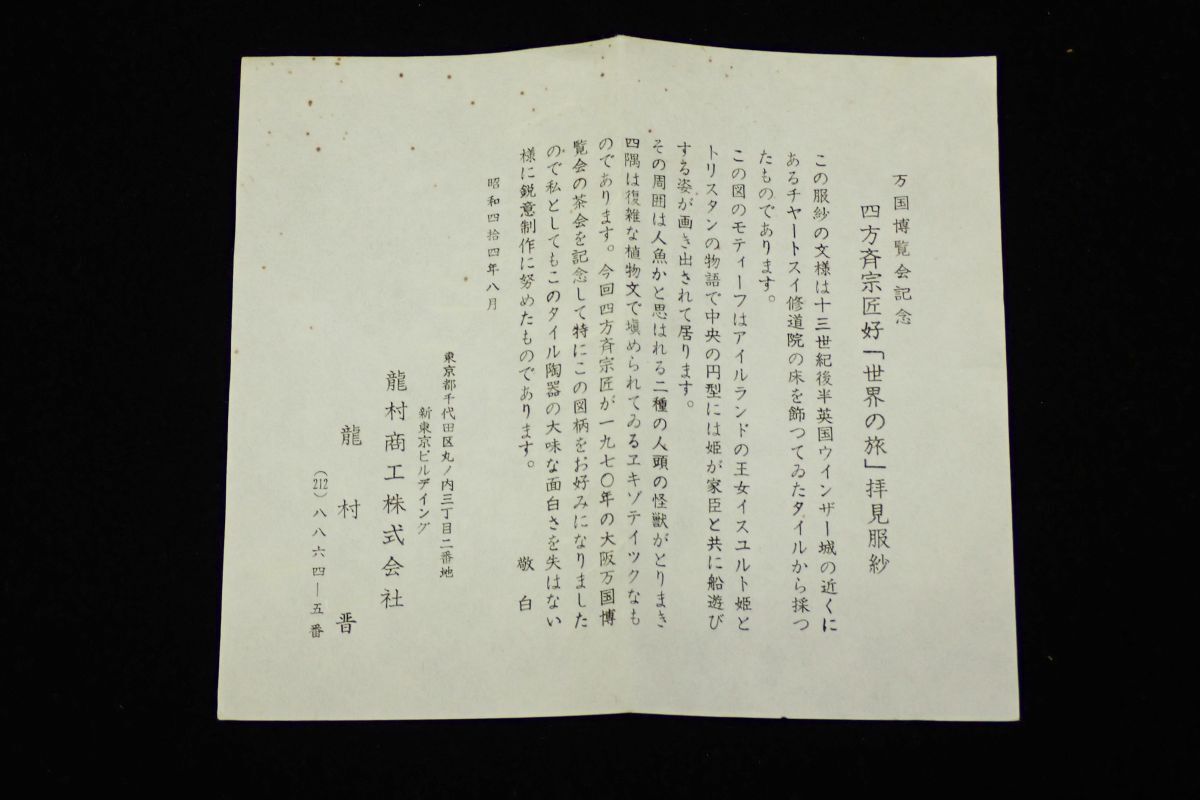 万国博覧会記念
四方斉宗匠好「世界の旅」拝見服紗
この服紗の文様は十三世紀後半英国ウインザー城の近くに
あるチヤートスイ修道院の床を飾つてゐたタイルから採つ
たものであります。
この図のモティーフはアイルランドの王女イスユルト姫と
トリスタンの物語で中央の円型には姫が家臣と共に船遊び
する姿が画き出されて居ります。
その周囲は人魚かと思はれる二種の人頭の怪獣がとりまき
四隅は復雑な植物文で塡められてゐるヱキゾテイツクなも
のであります。今回四方斉宗匠が一九七〇年の大阪万国博
覧会の茶会を記念して特にこの図柄をお好みになりました
ので私としてもこのタイル陶器の大味な面白さを失はない
様に鋭意制作に努めたものであります。
敬白
昭和四拾四年八月
東京都千代田区丸ノ内三丁目二番地
新東京ビルデイング
龍村商工株式会社
龍村晋
(212)八八六四―五番